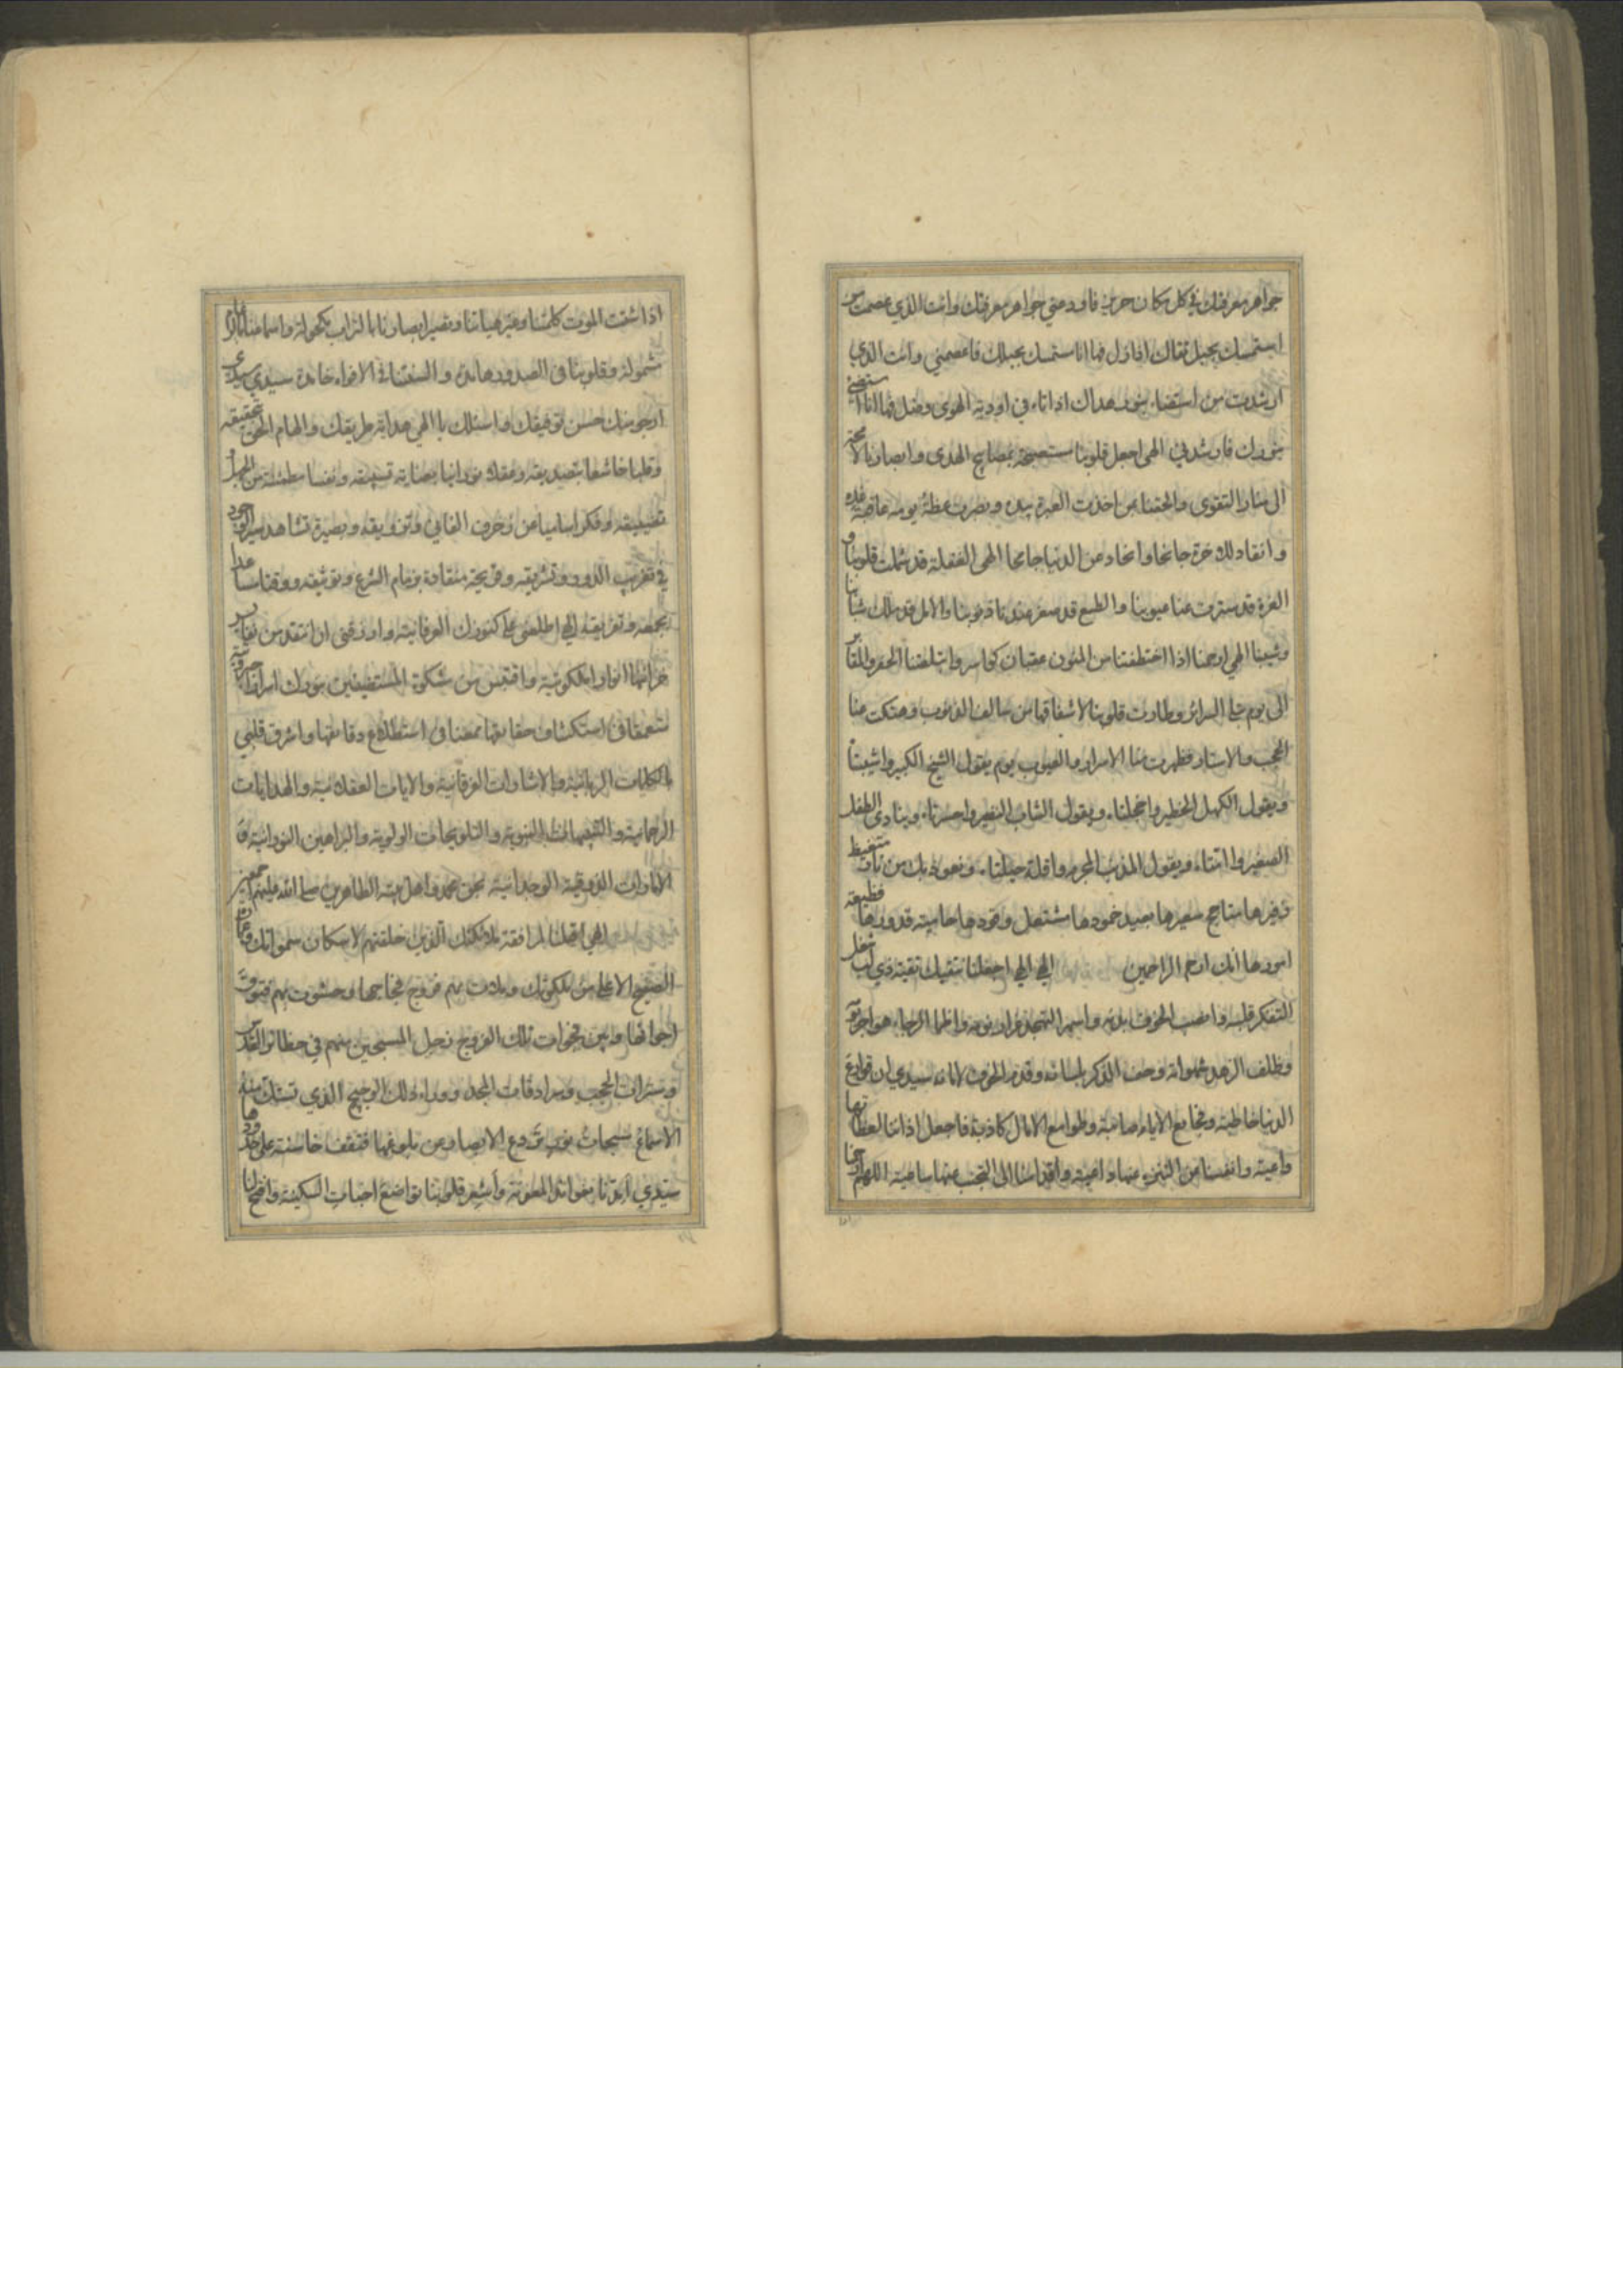 جواهر معرفتك في كل مكان حريز فاودعني جواهر معرفتك وانت الذي عصمت من
استمسك بحبل تقاك اذا زل فها انا استمسك بحبلك فاعصمني وانت الذي
ارشدت من استضاء بنور هداك اذا تاه في اودية الهوى وضل فها انا استضئ
بنورك فارشدني الهى اجعل قلوبنا مستصبحة بمصابيح الهدى وابصارنا لامحة
الى منار التقوى والحقنا بمن اخذت العبرة بيده وبصرت عظة يومه غده
وانقاد لك جانحا وانحاد عن الدنيا جامحا الهى الغفلة قد شملت قلوبنا و
الغرة قد سترت عنا عيوبنا والطمع قد صغر عندنا ذنوبنا والامل قد ملك شبابنا
وشيبنا الهي ارحمنا اذا اختطفتنا من المنون عقبان كواسر وابتلعتنا الحفر والمقابر
الى يوم تبلى السرائر وطارت قلوبنا لاشفاقها من سالف الذنوب وهتكت عنا
الحجب والاستار وظهرت منا الاسرار والعيوب يوم يقول الشيخ الكبير واشيبتاه
ويقول الكهل الخطير واخجلتاه ويقول الشاب النضير واحسرتاه وينادى الطفل
الصغير وا امتاه ويقول المذنب المجرم واقلة حيلتاه ونعوذ بك من نار متغيظ
زفيرها متاجج سعيرها بعيد خمودها مشتعل وقودها حامية قدورها فظيعة
امورها انك ارحم الراحمين الهي الهي اجعلنا نتقيك تقية ذي لب شغل
التفكر قلبه وانصب الخوف بدنه واسهر التهجد غرار نومه واظمأ الرجاء هواجر يومه
وظلف الزهد شهواته وحف الذكر بلسانه وقدم الخوف لامانه سيدي ان قوارع
الدنيا خاطبة وفجايع الايام صائبة وطوامع الامال كاذبة فاجعل اذاننا لعظاتها
واعية وانفسنا عن التنزه عنها داعية واقدامنا الى التجنب عنها ساعية اللهم ارحمنا
اذا شتت الموت كلمتنا وغير هياتنا وتصير ابصارنا بالتراب مكحولة واسماعنا
مشمولة وقلوبنا في الصدور هامدة والسنتنا في الافواه خامدة سيدي سيدي
ارجو منك حسن توفيقك واسئلك يا الهي هداية طريقك والهام الحق تحقيقه
وقلبا خاشعا بتصديقه وعقلا نورانيا بعناية تسبيقه ونفسا مطمئنة من الجهل
بضيقه وفكرا ساميا عن زخرف الفاني وتزويقه وبصيرة تشاهد سر الوجود
في تغريب الدور وتشريقه وقريحة منقادة بزمام الشرع وتوثيقه ووقتا مساعدا
بجمعه وتفريقه الهي اطلعني على كنوزك العرفانية وارزقني ان انتقد من نفايس
خزائنها انوارا ملكوتية واقتبس من مشكوة المستضيئين بنورك اسرارا جبروتية
متعمقا في استكشاف حقايقها ممعنا في استطلاع دقايقها واشرق قلبي
بالكلمات الربانية والاشارات الفرقانية والايات العقلانية والهدايات
الرحمانية والتفهيمات النبوية والتلويحات الولوية والبراهين النورانية و
الامارات الذوقية الوجدانية بحق محمد واهل بيته الطاهرين صلى الله عليهم اجمعين
الهي اقبلنا لمرافقة ملائكتك الذين خلقتهم لاسكان سمواتك وعمارة
الصفيح الاعلى من ملكوتك وملات بهم فروج فجاجها وحشوت بهم فتوق
اجوائها وبين فجوات تلك الفروج زجل المسبحين منهم في حظائر القدس
وسترات الحجب وسرادقات المجد ووراء ذلك الرجيج الذي تستك منه
الاسماع سبحات نور تردع الابصار عن بلوغها فتقف خاسئة على حدودها
سيدي ايدنا بفوائد المعونة واشعر قلوبنا تواضع اخبات السكينة وافتح لنا